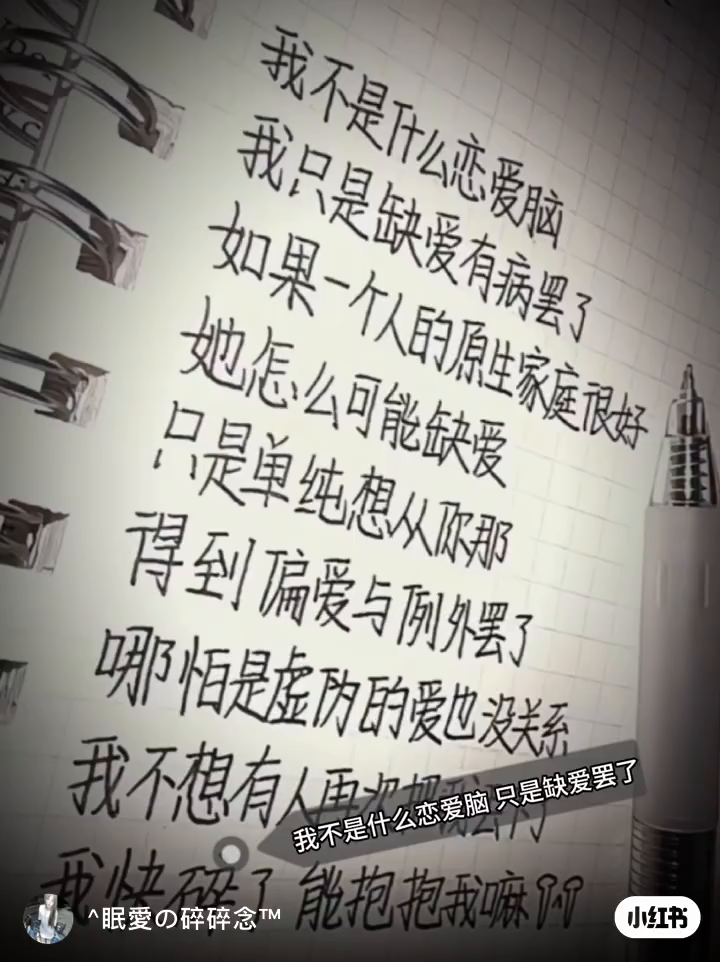 我不是什么恋爱脑
我只是缺爱有病罢了
如果一个人的原生家庭很好
她怎么可能缺爱
只是单纯想从你那
得到偏爱与例外罢了
哪怕是虚伪的爱也没关系
我不想有人再次把
我不是什么恋爱脑 只是缺爱罢了
我快碎了 能抱抱我嘛
^眠愛の碎碎念™
小红书